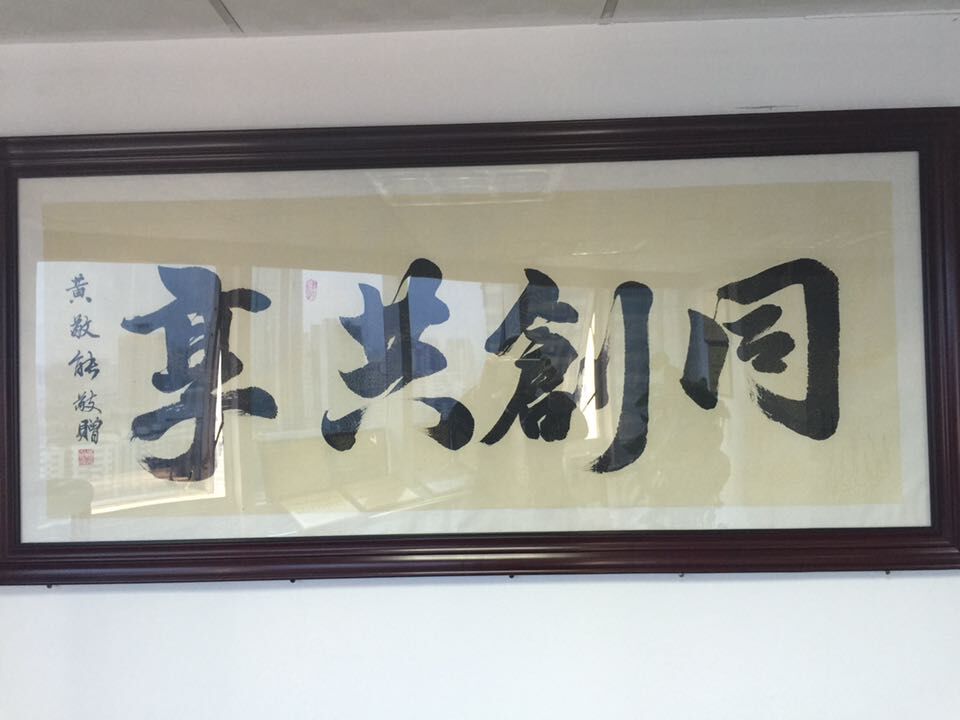 同創共享
黃敬能敬贈